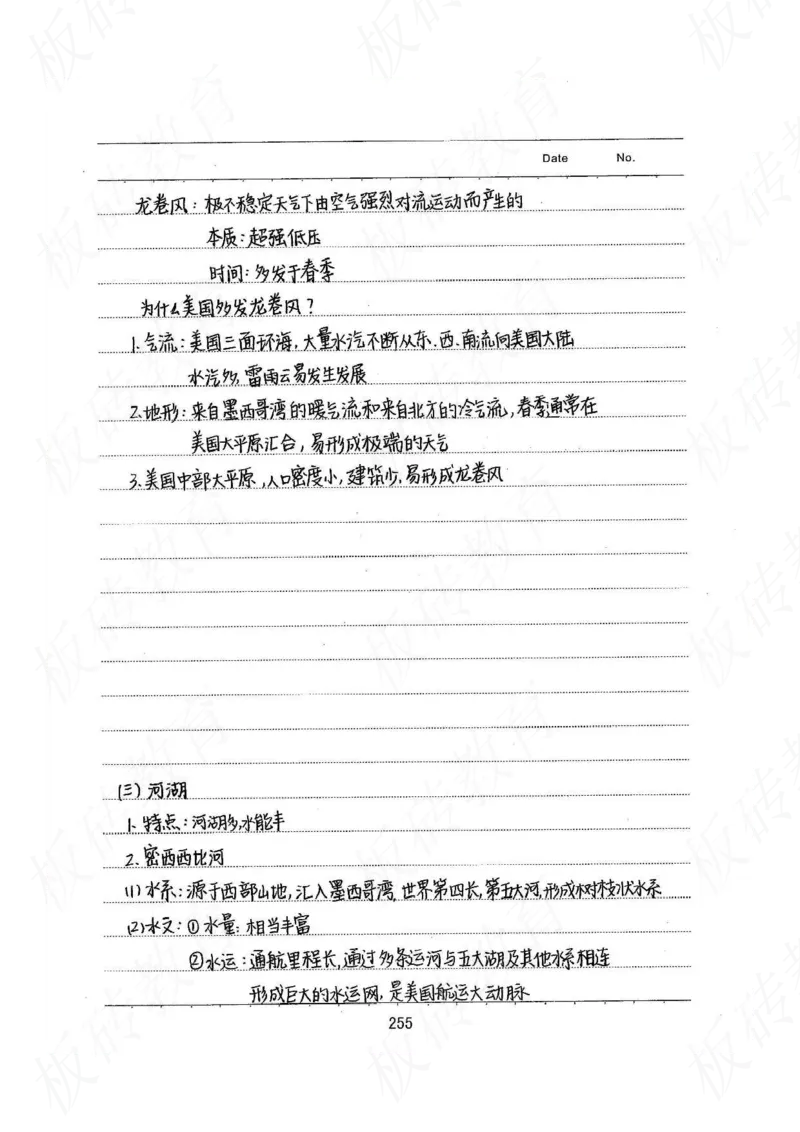 Date No.
龙卷风：极不稳定天气下由空气强烈对流运动而产生的
本质：超强低压
时间：多发于春季
为什么美国多发龙卷风？
1.气流：美国三面环海,大量水汽不断从东.西.南流向美国大陆
水汽多,雷雨云易发生发展
2.地形：来自墨西哥湾的暖气流和来自北方的冷气流,春季通常在
美国大平原汇合,易形成极端的天气
3.美国中部大平原,人口密度小,建筑少,易形成龙卷风
(三)河湖
1.特点：河湖多,水能丰
2.密西西比河
(1)水系：源于西部山地,汇入墨西哥湾,世界第四长,第五大河,形成树枝状水系
(2)水文：①水量：相当丰富
②水运：通航里程长,通过多条运河与五大湖及其他水系相连
形成巨大的水运网,是美国航运大动脉
255
板砖教育